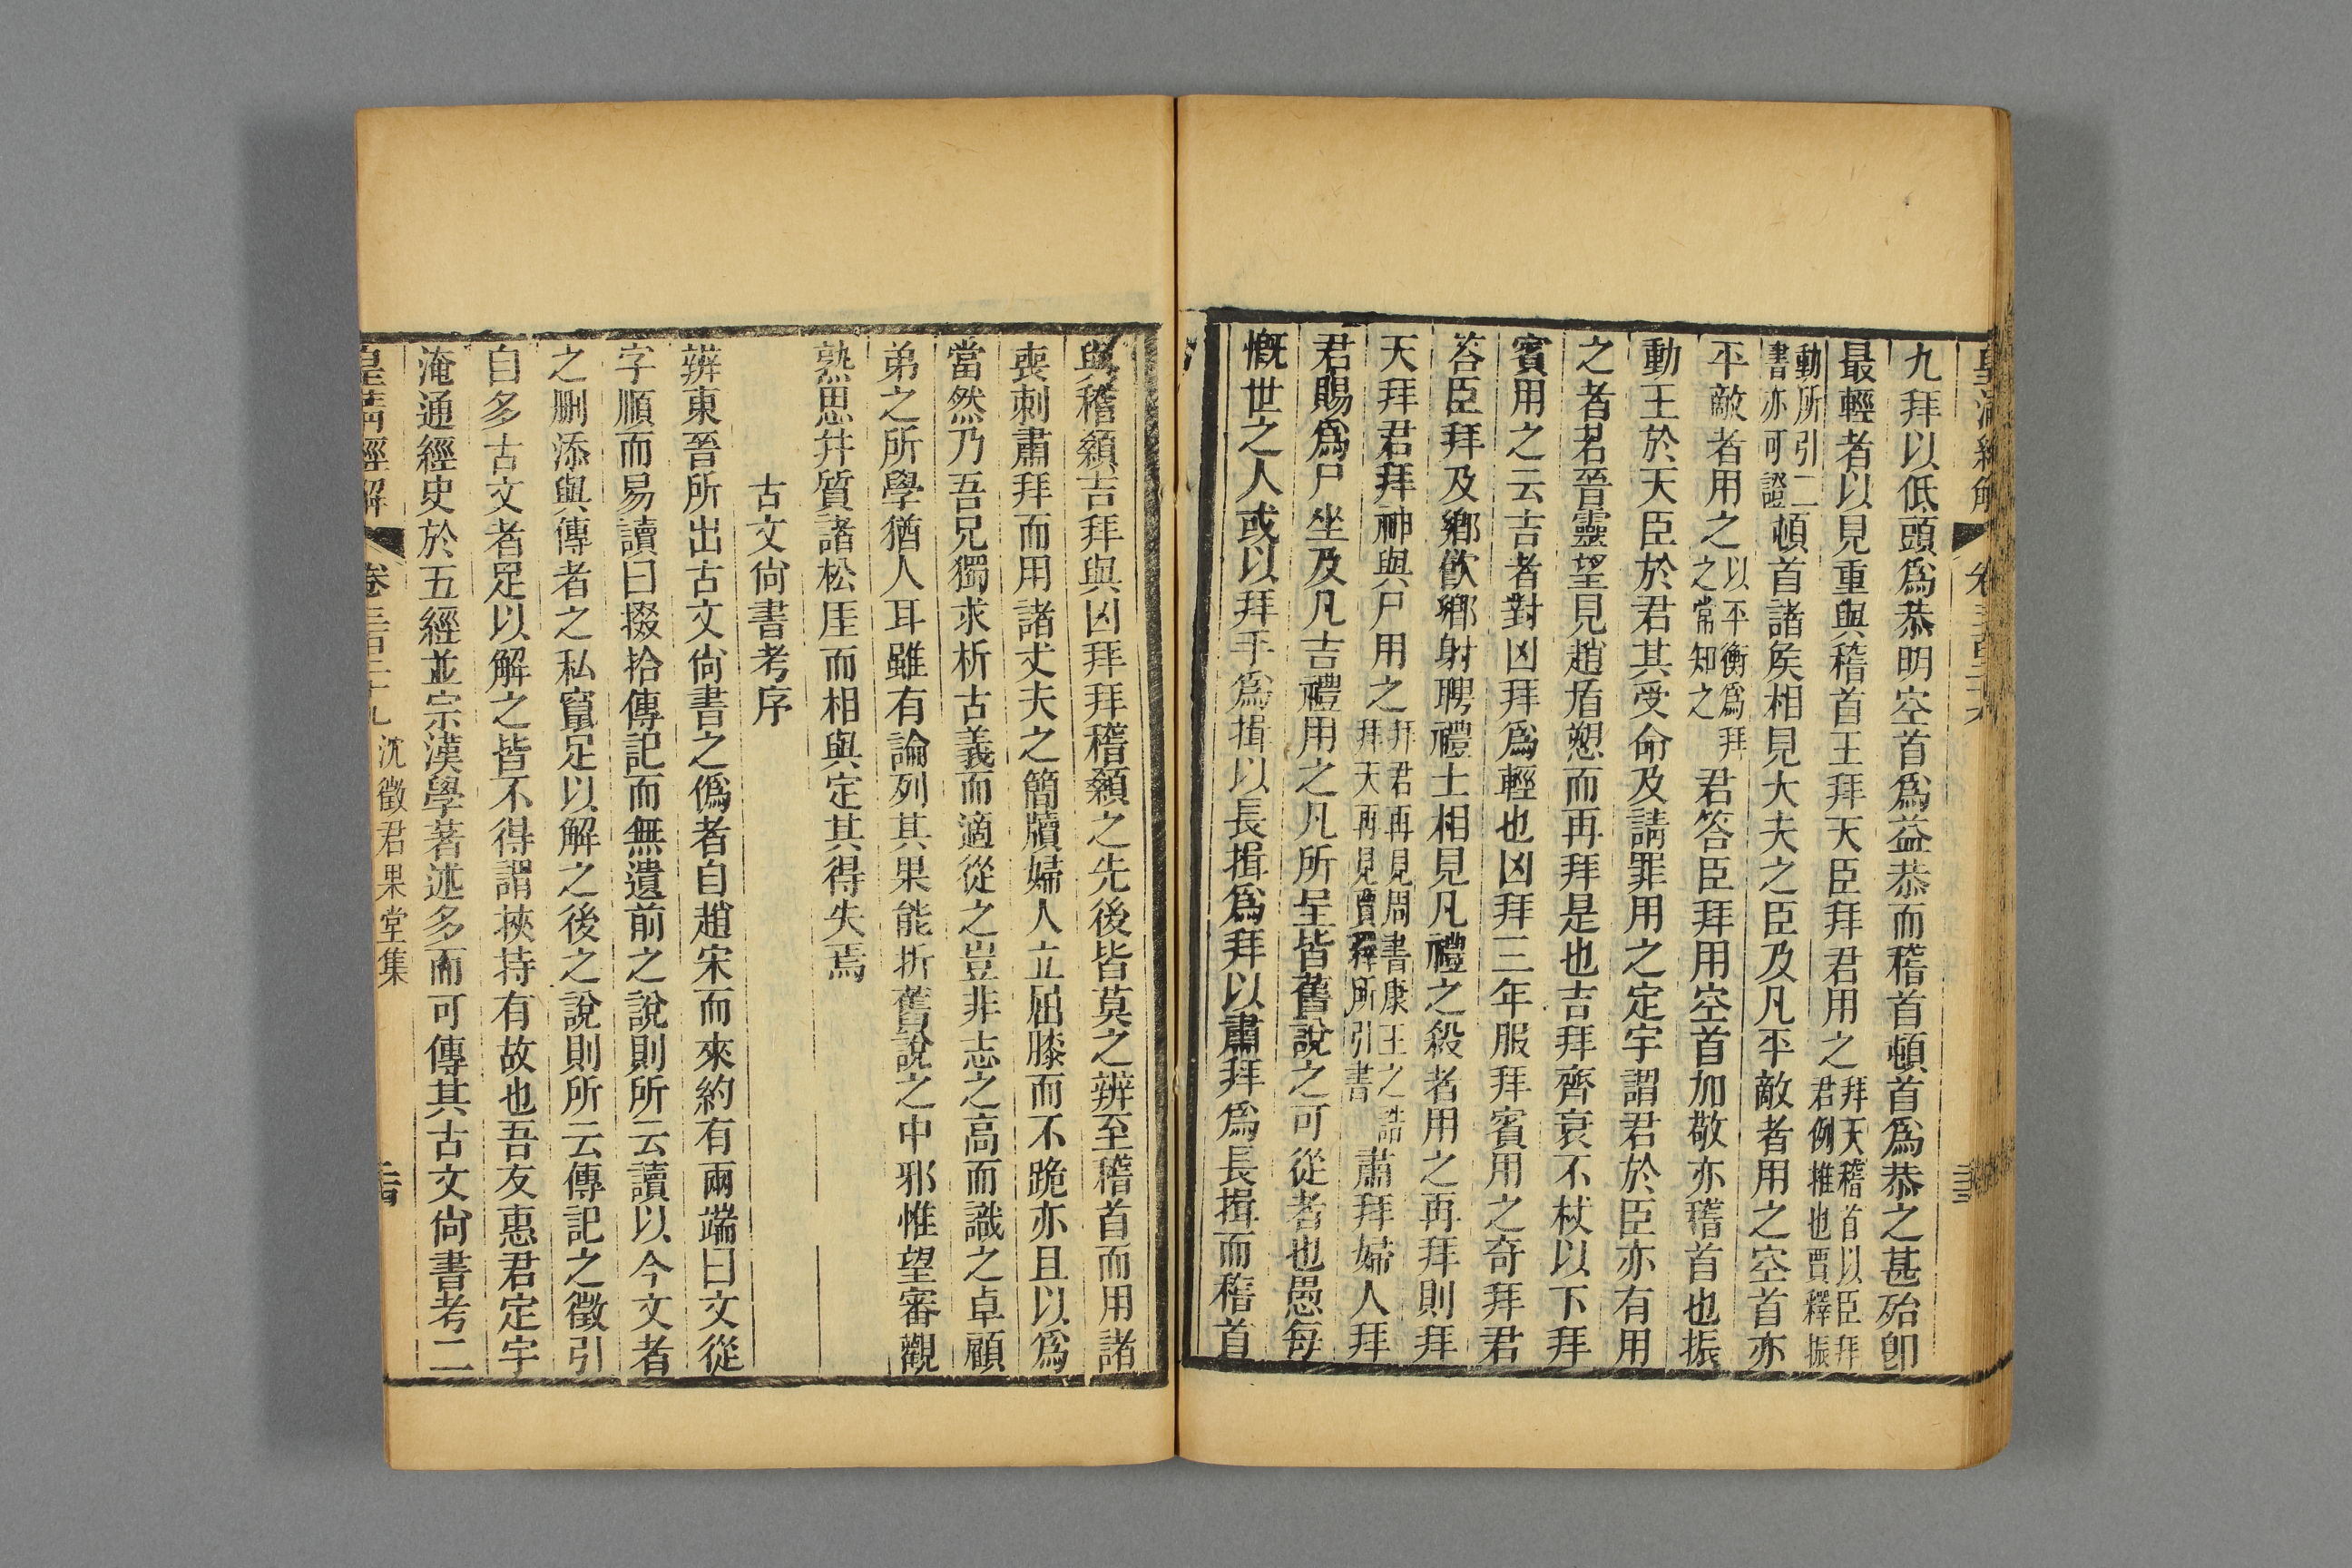 九拜以低頭爲恭明空首爲益恭而稽首頓首爲恭之甚殆卽
最輕者以見重與稽首王拜天臣拜君用之拜天稽首以臣拜君例推也賈釋振
動所引二書亦可證頓首諸矦相見大夫之臣及凡平敵者用之空首亦
平敵者用之以平衡爲拜之常知之君答臣拜用空首加敬亦稽首也振
動王於天臣於君其受命及請罪用之定宇謂君於臣亦有用
之者君晉靈望見趙盾愬而再拜是也吉拜齊衰不杖以下拜
賓用之云吉者對凶拜爲輕也凶拜三年服拜賓用之奇拜君
答臣拜及鄉飮鄉射聘禮士相見凡禮之殺者用之再拜則拜
天拜君拜神與尸用之拜君再見周書康王之誥拜天再見賈釋所引書肅拜婦人拜
君賜爲尸坐及凡吉禮用之凡所呈皆舊說之可從者也愚每
慨世之人或以拜手爲揖以長揖爲拜以肅拜爲長揖而稽首
與稽顙吉拜與凶拜拜稽顙之先後皆莫之辨至稽首而用諸
喪刺肅拜而用諸丈夫之簡牘婦人立屈膝而不跪亦且以爲
當然乃吾兄獨求析古義而適從之豈非志之高而識之卓顧
弟之所學猶人耳雖有論列其果能折舊說之中邪惟望審觀
熟思幷質諸松厓而相與定其得失焉
古文尙書考序
辨東晉所出古文尙書之僞者自趙宋而來約有兩端曰文從
字順而易讀曰掇拾傳記而無遺前之說則所云讀以今文者
之刪添與傳者之私竄足以解之後之說則所云傳記之徵引
自多古文者足以解之皆不得謂挾持有故也吾友惠君定宇
淹通經史於五經並宗漢學著述多而可傳其古文尙書考二
皇淸經解 卷三百二十九 沈徵君果堂集